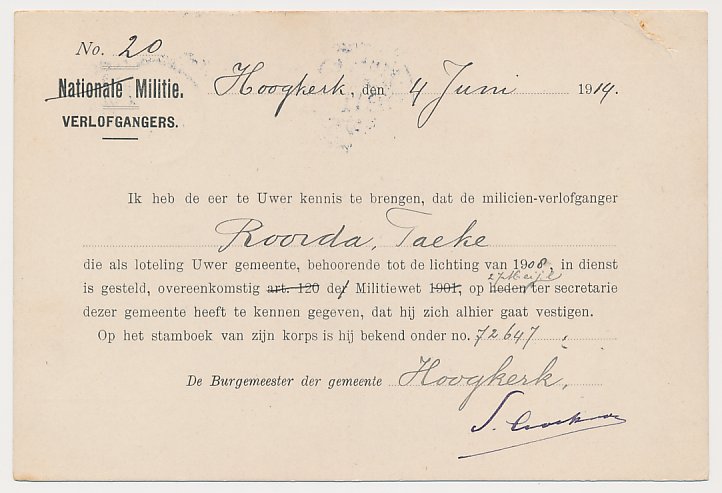 No. 20
Nationale Militie.
VERLOFGANGERS.
Hoogkerk, den 4 Juni 1914.
Ik heb de eer te Uwer kennis te brengen, dat de milicien-verlofganger
Roorda, Taeke
die als loteling Uwer gemeente, behoorende tot de lichting van 1908, in dienst
is gesteld, overeenkomstig art. 120 der Militiewet 1901, op heden ter secretarie
dezer gemeente heeft te kennen gegeven, dat hij zich alhier gaat vestigen.
Op het stamboek van zijn korps is hij bekend onder no. 72647.
De Burgemeester der gemeente Hoogkerk,